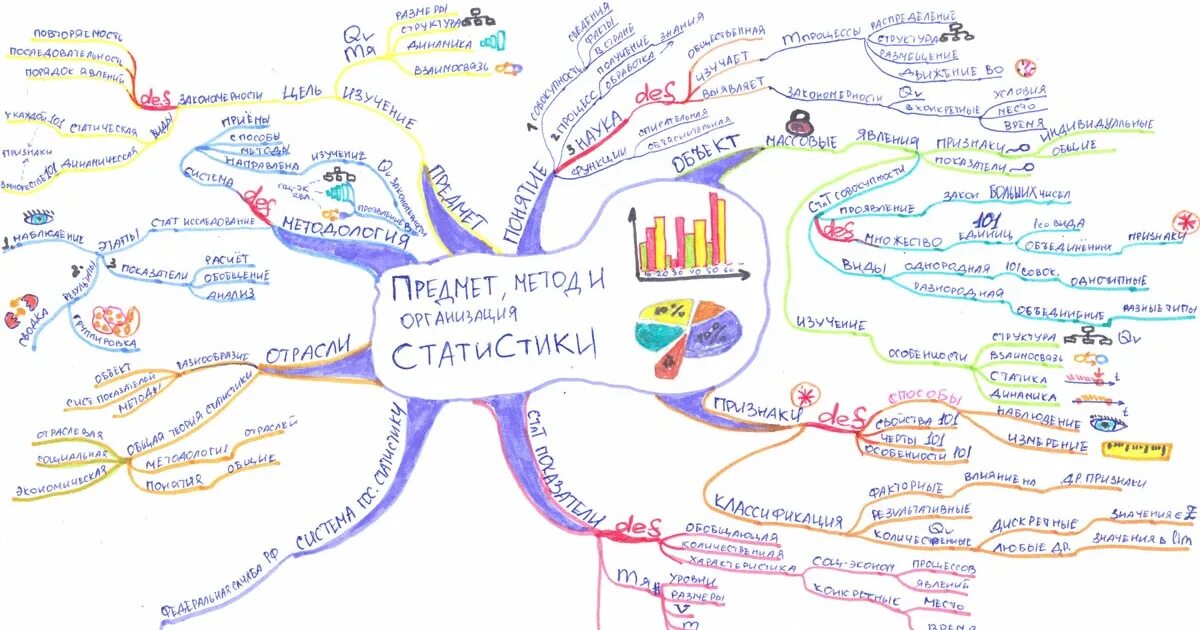 ПРЕДМЕТ, МЕТОД И
ОРГАНИЗАЦИЯ
СТАТИСТИКИ
ПОНЯТИЕ
1 СОВОКУПНОСТЬ
СВЕДЕНИЯ
ФАКТЫ
В СТРАНЕ
2 ПРОЦЕСС
ПОЛУЧЕНИЕ
ЗНАНИЯ
ОБРАБОТКА
3 НАУКА
def
ОБЩЕСТВЕННАЯ
ИЗУЧАЕТ
ПРОЦЕССЫ
РАСПРЕДЕЛЕНИЕ
СТРУКТУРА
РАЗМЕЩЕНИЕ
ДВИЖЕНИЕ ВО
ВЫЯВЛЯЕТ
ЗАКОНОМЕРНОСТИ
Qv
В КОНКРЕТНЫЕ
УСЛОВИЯ
МЕСТО
ВРЕМЯ
ФУНКЦИИ
ОПИСАТЕЛЬНАЯ
ОБЪЯСНИТЕЛЬНАЯ
ОБЪЕКТ
МАССОВЫЕ
ЯВЛЕНИЯ
ПРИЗНАКИ
ИНДИВИДУАЛЬНЫЕ
ОБЩИЕ
ПОКАЗАТЕЛИ
СТАТ СОВОКУПНОСТИ
ПРОЯВЛЕНИЕ
ЗАКОН БОЛЬШИХ ЧИСЕЛ
def
МНОЖЕСТВО
101
ЕДИНИЦ
1го ВИДА
ОБЪЕДИНЁННЫХ
ПРИЗНАКИ
ВИДЫ
ОДНОРОДНАЯ
101 СОВОК.
ОДНОТИПНЫЕ
РАЗНОРОДНАЯ
ОБЪЕДИНЕНИЕ
РАЗНЫЕ ТИПЫ
ИЗУЧЕНИЕ
ОСОБЕННОСТИ
СТРУКТУРА
Qv
ВЗАИМОСВЯЗЬ
СТАТИКА
t
ДИНАМИКА
t
ПРИЗНАКИ
def
СПОСОБЫ
НАБЛЮДЕНИЕ
ИЗМЕРЕНИЕ
СВОЙСТВА 101
ЧЕРТЫ 101
ОСОБЕННОСТИ 101
КЛАССИФИКАЦИЯ
ФАКТОРНЫЕ
ВЛИЯНИЕ НА
ДР. ПРИЗНАКИ
РЕЗУЛЬТАТИВНЫЕ
Qv
КОЛИЧЕСТВЕННЫЕ
ДИСКРЕТНЫЕ
ЗНАЧЕНИЯ ∈ Z
ЛЮБЫЕ ДР.
ЗНАЧЕНИЯ В lim
СТАТ ПОКАЗАТЕЛИ
def
ОБОБЩАЮЩАЯ
КОЛИЧЕСТВЕННАЯ
ХАРАКТЕРИСТИКА
СОЦ-ЭКОНОМ
ПРОЦЕССОВ
ЯВЛЕНИЙ
КОНКРЕТНЫЕ
МЕСТО
ВРЕМЯ
УРОВНИ
РАЗМЕРЫ
V
m
СИСТЕМА ГОС. СТАТИСТИКИ
ФЕДЕРАЛЬНАЯ СЛУЖБА РФ
ОТРАСЛИ
РАЗНООБРАЗИЕ
ОБЪЕКТ
СИСТ ПОКАЗАТЕЛЕЙ
МЕТОДЫ
ОБЩАЯ ТЕОРИЯ СТАТИСТИКИ
ОТРАСЛЕВАЯ
СОЦИАЛЬНАЯ
ЭКОНОМИЧЕСКАЯ
МЕТОДОЛОГИЯ
ОТРАСЛЕЙ
ПОНЯТИЯ
ОБЩИЕ
МЕТОДОЛОГИЯ
def
СИСТЕМА
ПРИЁМЫ
СПОСОБЫ
МЕТОДЫ
НАПРАВЛЕНА
ИЗУЧЕНИЕ
Q ЗАКОНОМЕРН
СОЦ-ЭК
ЯВЛ.
ПРОЯВЛЕНИЕ В
СТАТ ИССЛЕДОВАНИЕ
ЭТАПЫ
1. НАБЛЮДЕНИЕ
2. РЕЗУЛЬТАТЫ
СВОДКА
ГРУППИРОВКА
3 ПОКАЗАТЕЛИ
РАСЧЁТ
ОБОБЩЕНИЕ
АНАЛИЗ
ПРЕДМЕТ
ИЗУЧЕНИЕ
Qv
РАЗМЕРЫ
СТРУКТУРА
ДИНАМИКА
ВЗАИМОСВЯЗЬ
ЦЕЛЬ
ЗАКОНОМЕРНОСТИ
def
ПОВТОРЯЕМОСТЬ
ПОСЛЕДОВАТЕЛЬНОСТЬ
ПОРЯДОК ЯВЛЕНИЙ
ВИДЫ
СТАТИЧЕСКАЯ
У КАЖДОЙ 101
ДИНАМИЧЕСКАЯ
ПРИЗНАКИ
В МНОЖЕСТВЕ 101
10 20 30 40 50 60
10%